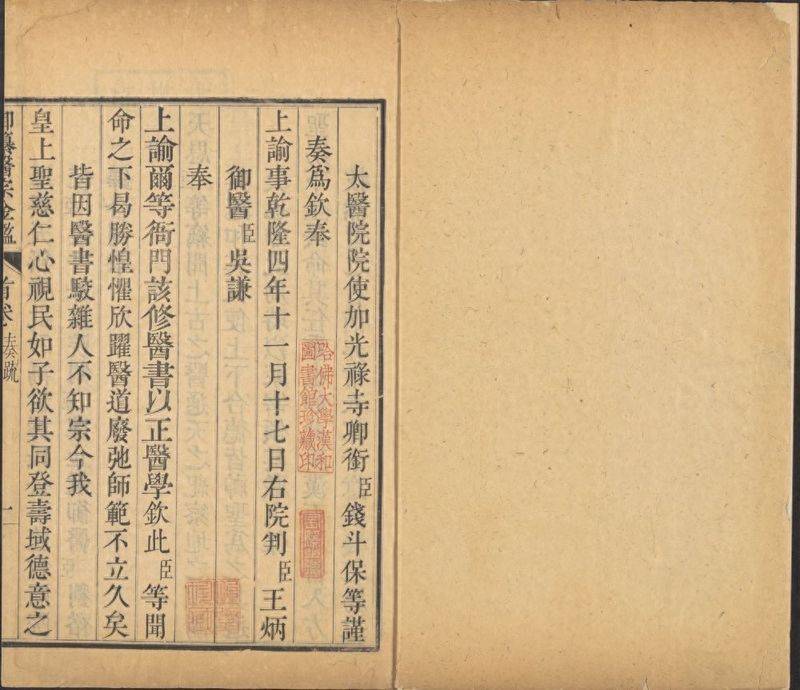 太醫院院使加光祿寺卿銜臣錢斗保等謹
奏爲欽奉
上諭事乾隆四年十一月十七日右院判臣王炳
御醫臣吳謙
奉
上諭爾等衙門該修醫書以正醫學欽此臣等聞
命之下曷勝惶懼欣躍醫道廢弛師範不立久矣
皆因醫書駁雜人不知宗今我
皇上聖慈仁心視民如子欲其同登壽域德意之
御纂醫宗金鑑 首卷 奏疏 一
哈佛大學漢和圖書館珍藏印